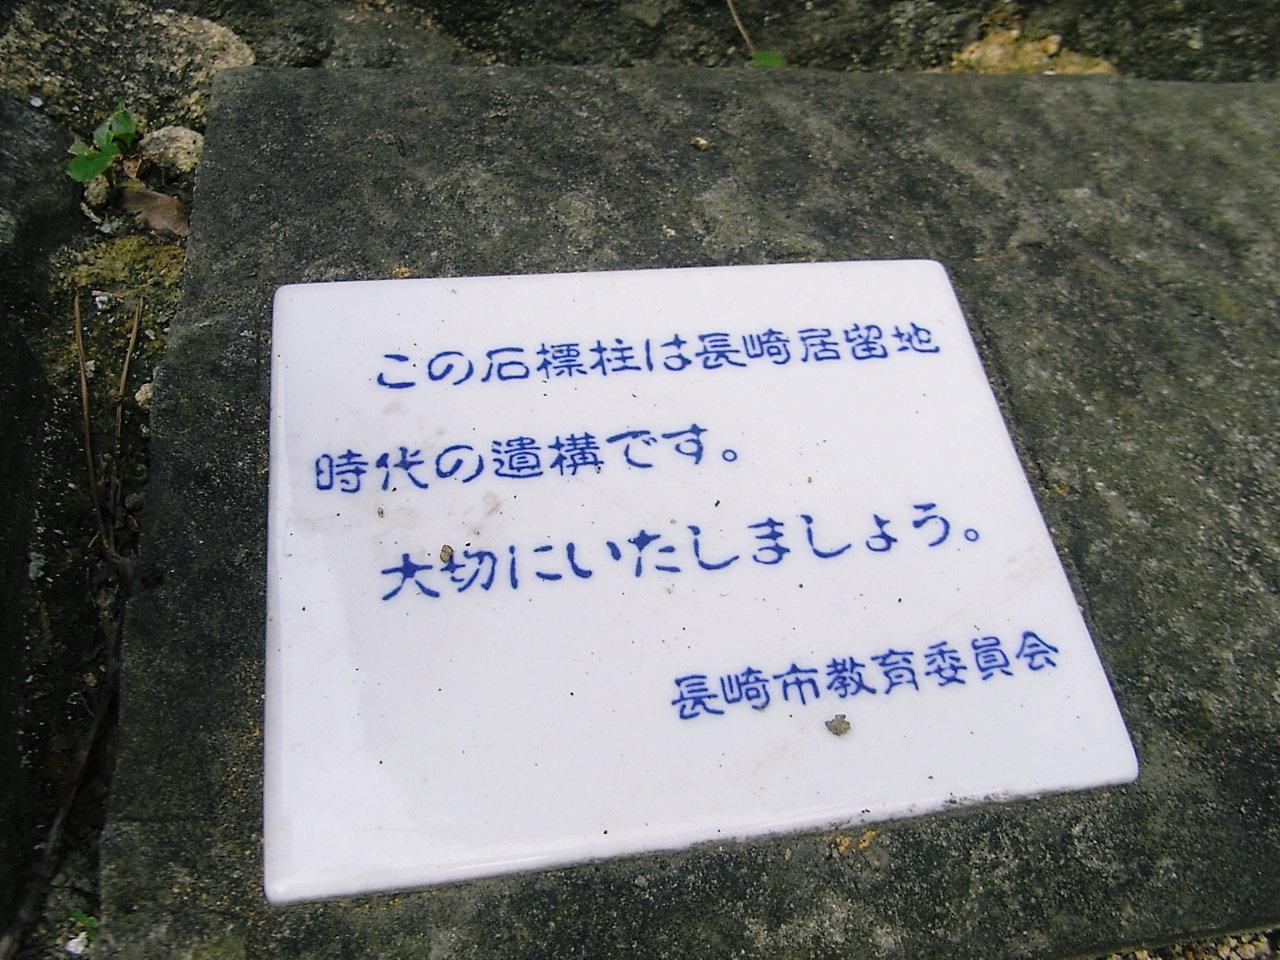 この石標柱は長崎居留地
時代の遺構です。
大切にいたしましょう。
長崎市教育委員会